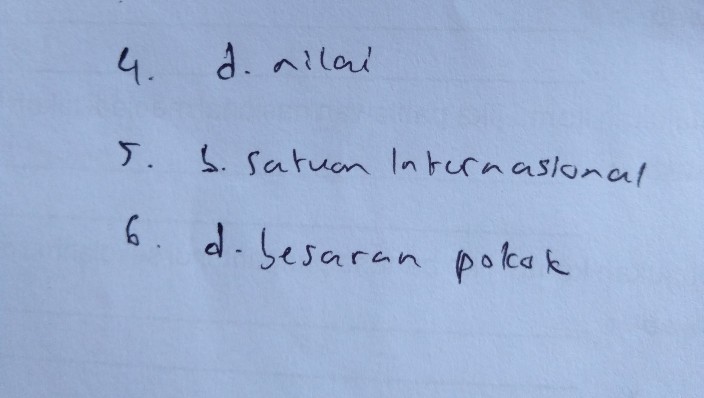 4. d. nilai
5. b. Satuan Internasional
6. d. besaran pokok